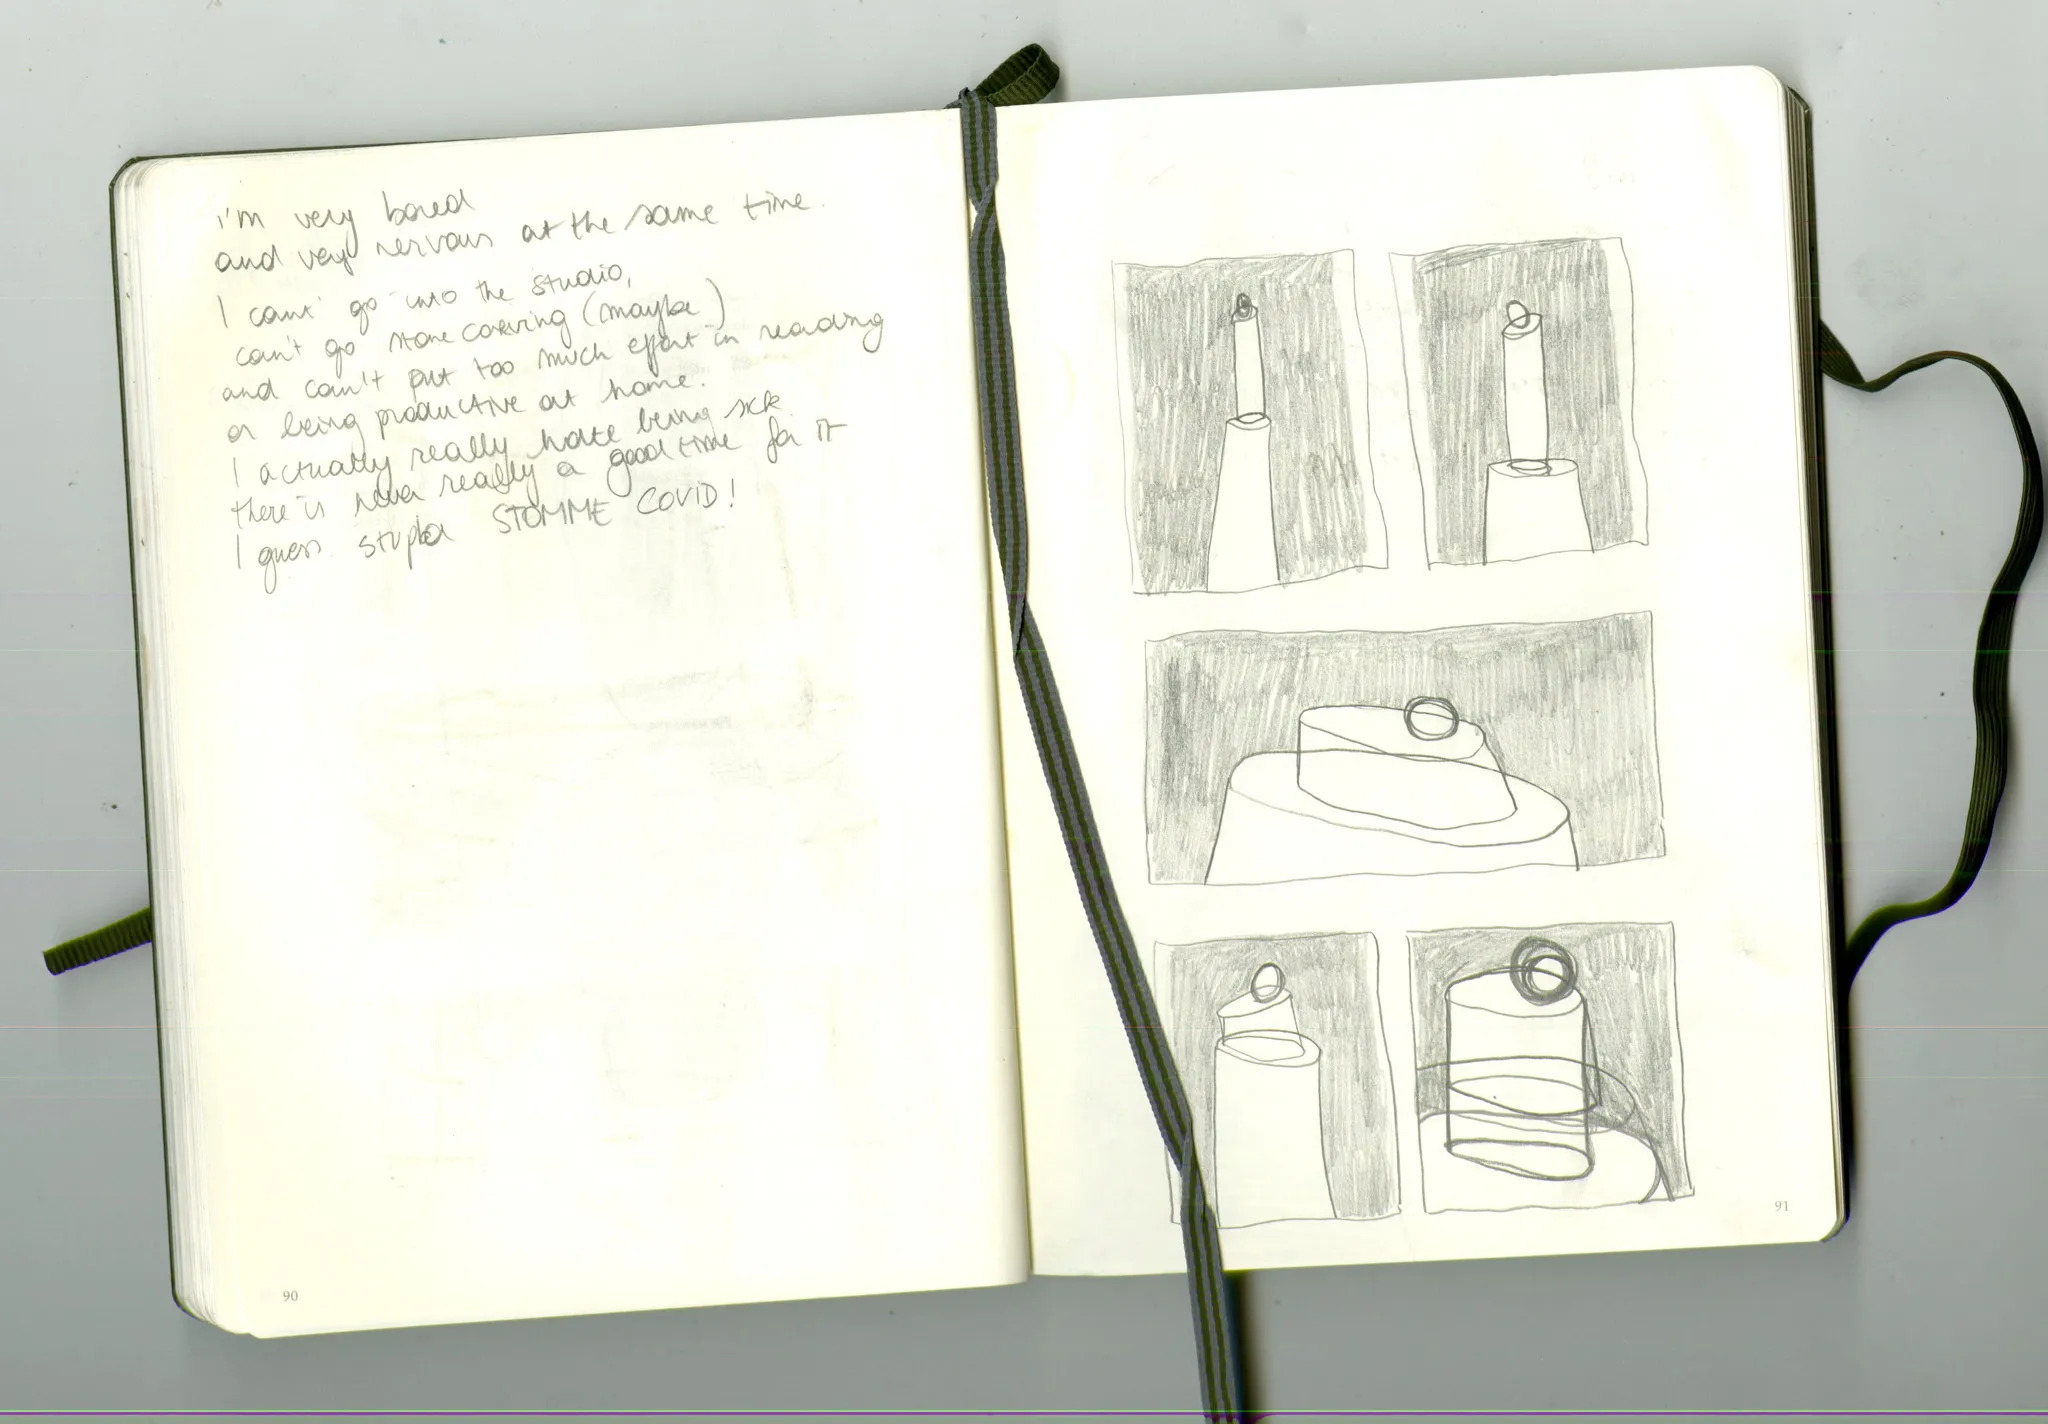 i'm very bored
and very nervous at the same time.
I can't go into the studio,
can't go stone carving (maybe)
and can't put too much effort in reading
or being productive at home.
I actually really hate being sick
there is never really a good time for it
I guess. stupid STOMME COVID!
90
91